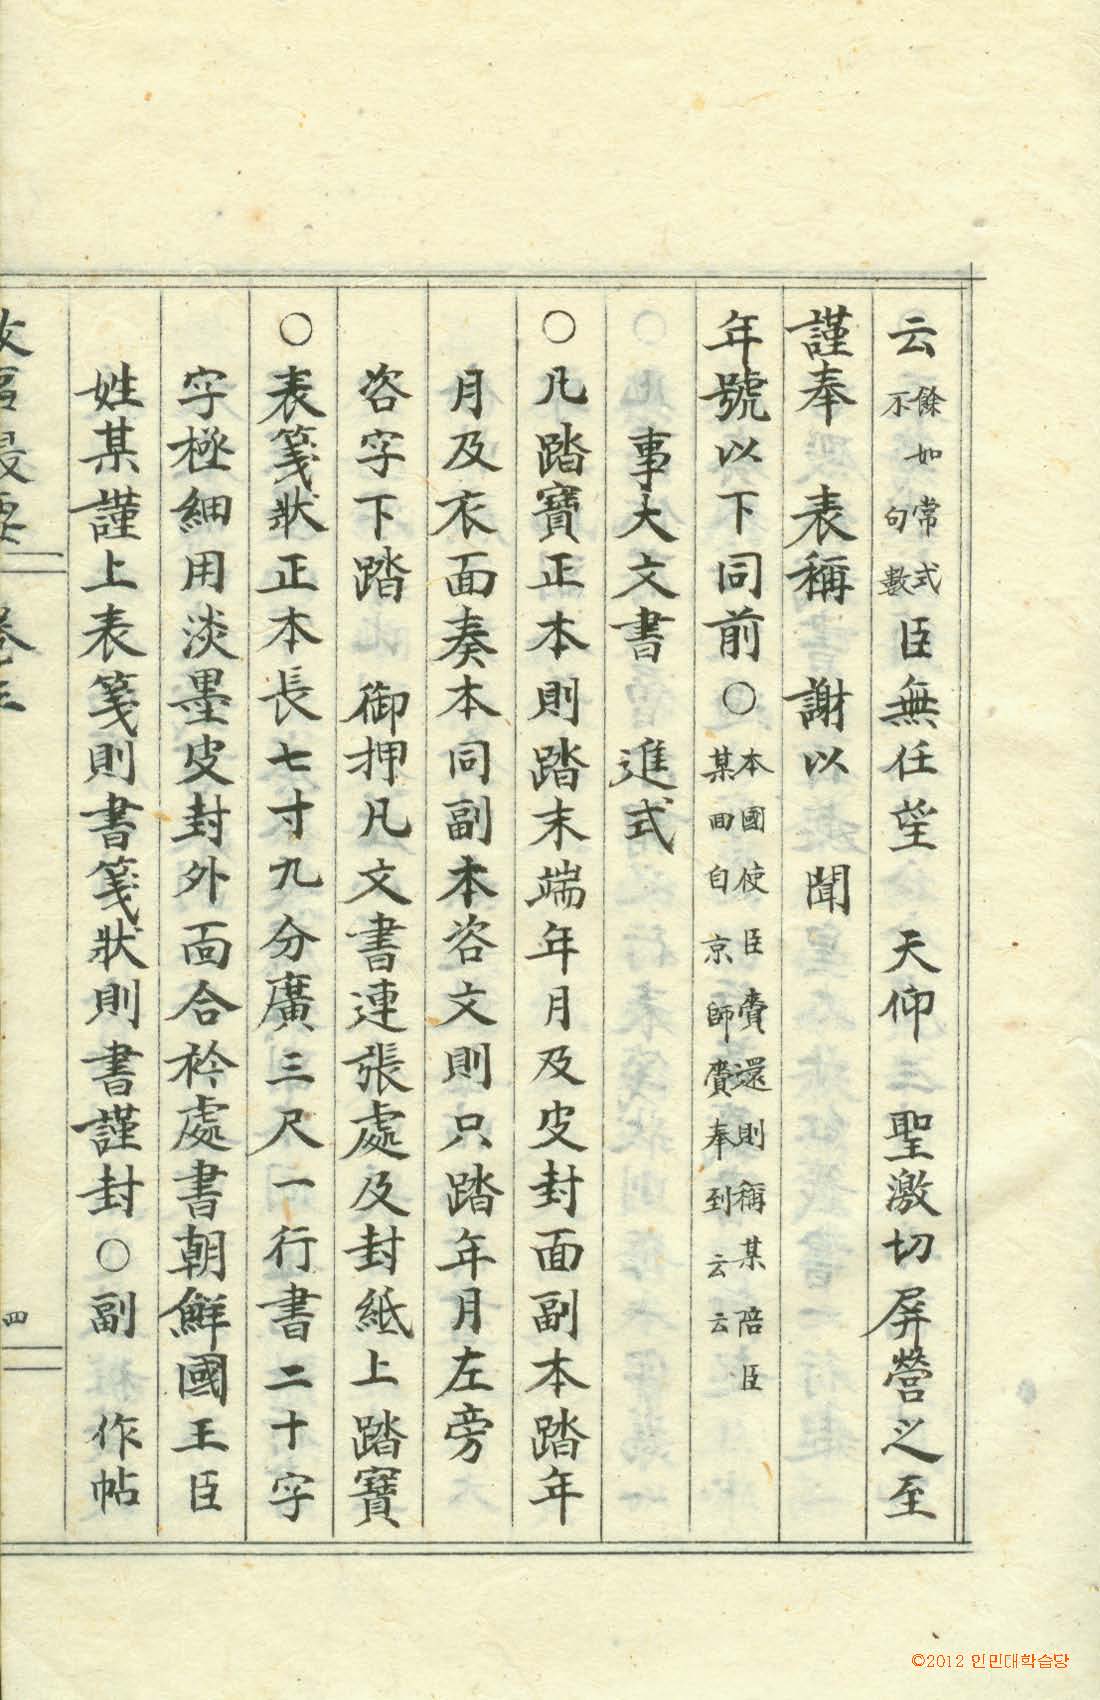 云餘如常式不句數臣無任望 天仰 聖激切屛營之至
謹奉 表稱 謝以 聞
年號以下同前○本國使臣賫還則稱某陪臣某回自京師賫奉到云云
事大文書 進式
○凡踏寶正本則踏末端年月及皮封面副本踏年
月及衣面奏本同副本咨文則只踏年月左旁
咨字下踏 御押凡文書連張處及封紙上踏寶
○表箋狀正本長七寸九分廣三尺一行書二十字
字極細用淡墨皮封外面合衿處書朝鮮國王臣
姓某謹上表箋則書箋狀則書謹封○副 作帖
四
©2012 인민대학습당